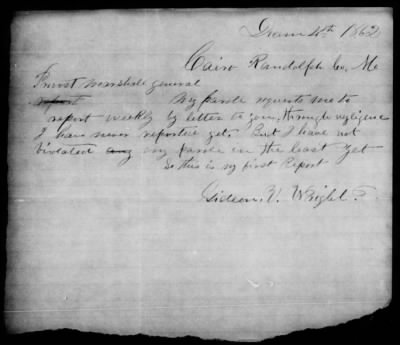 4th 1862
Cairo Randolph Co, Mo
Provost Marshall general
report My parole requests me to
report weekly by letter to you, through negligence
I have never reported yet, But I have not
violated any my parole in the least yet
So this is my first Report
Gideon. V. Wright.